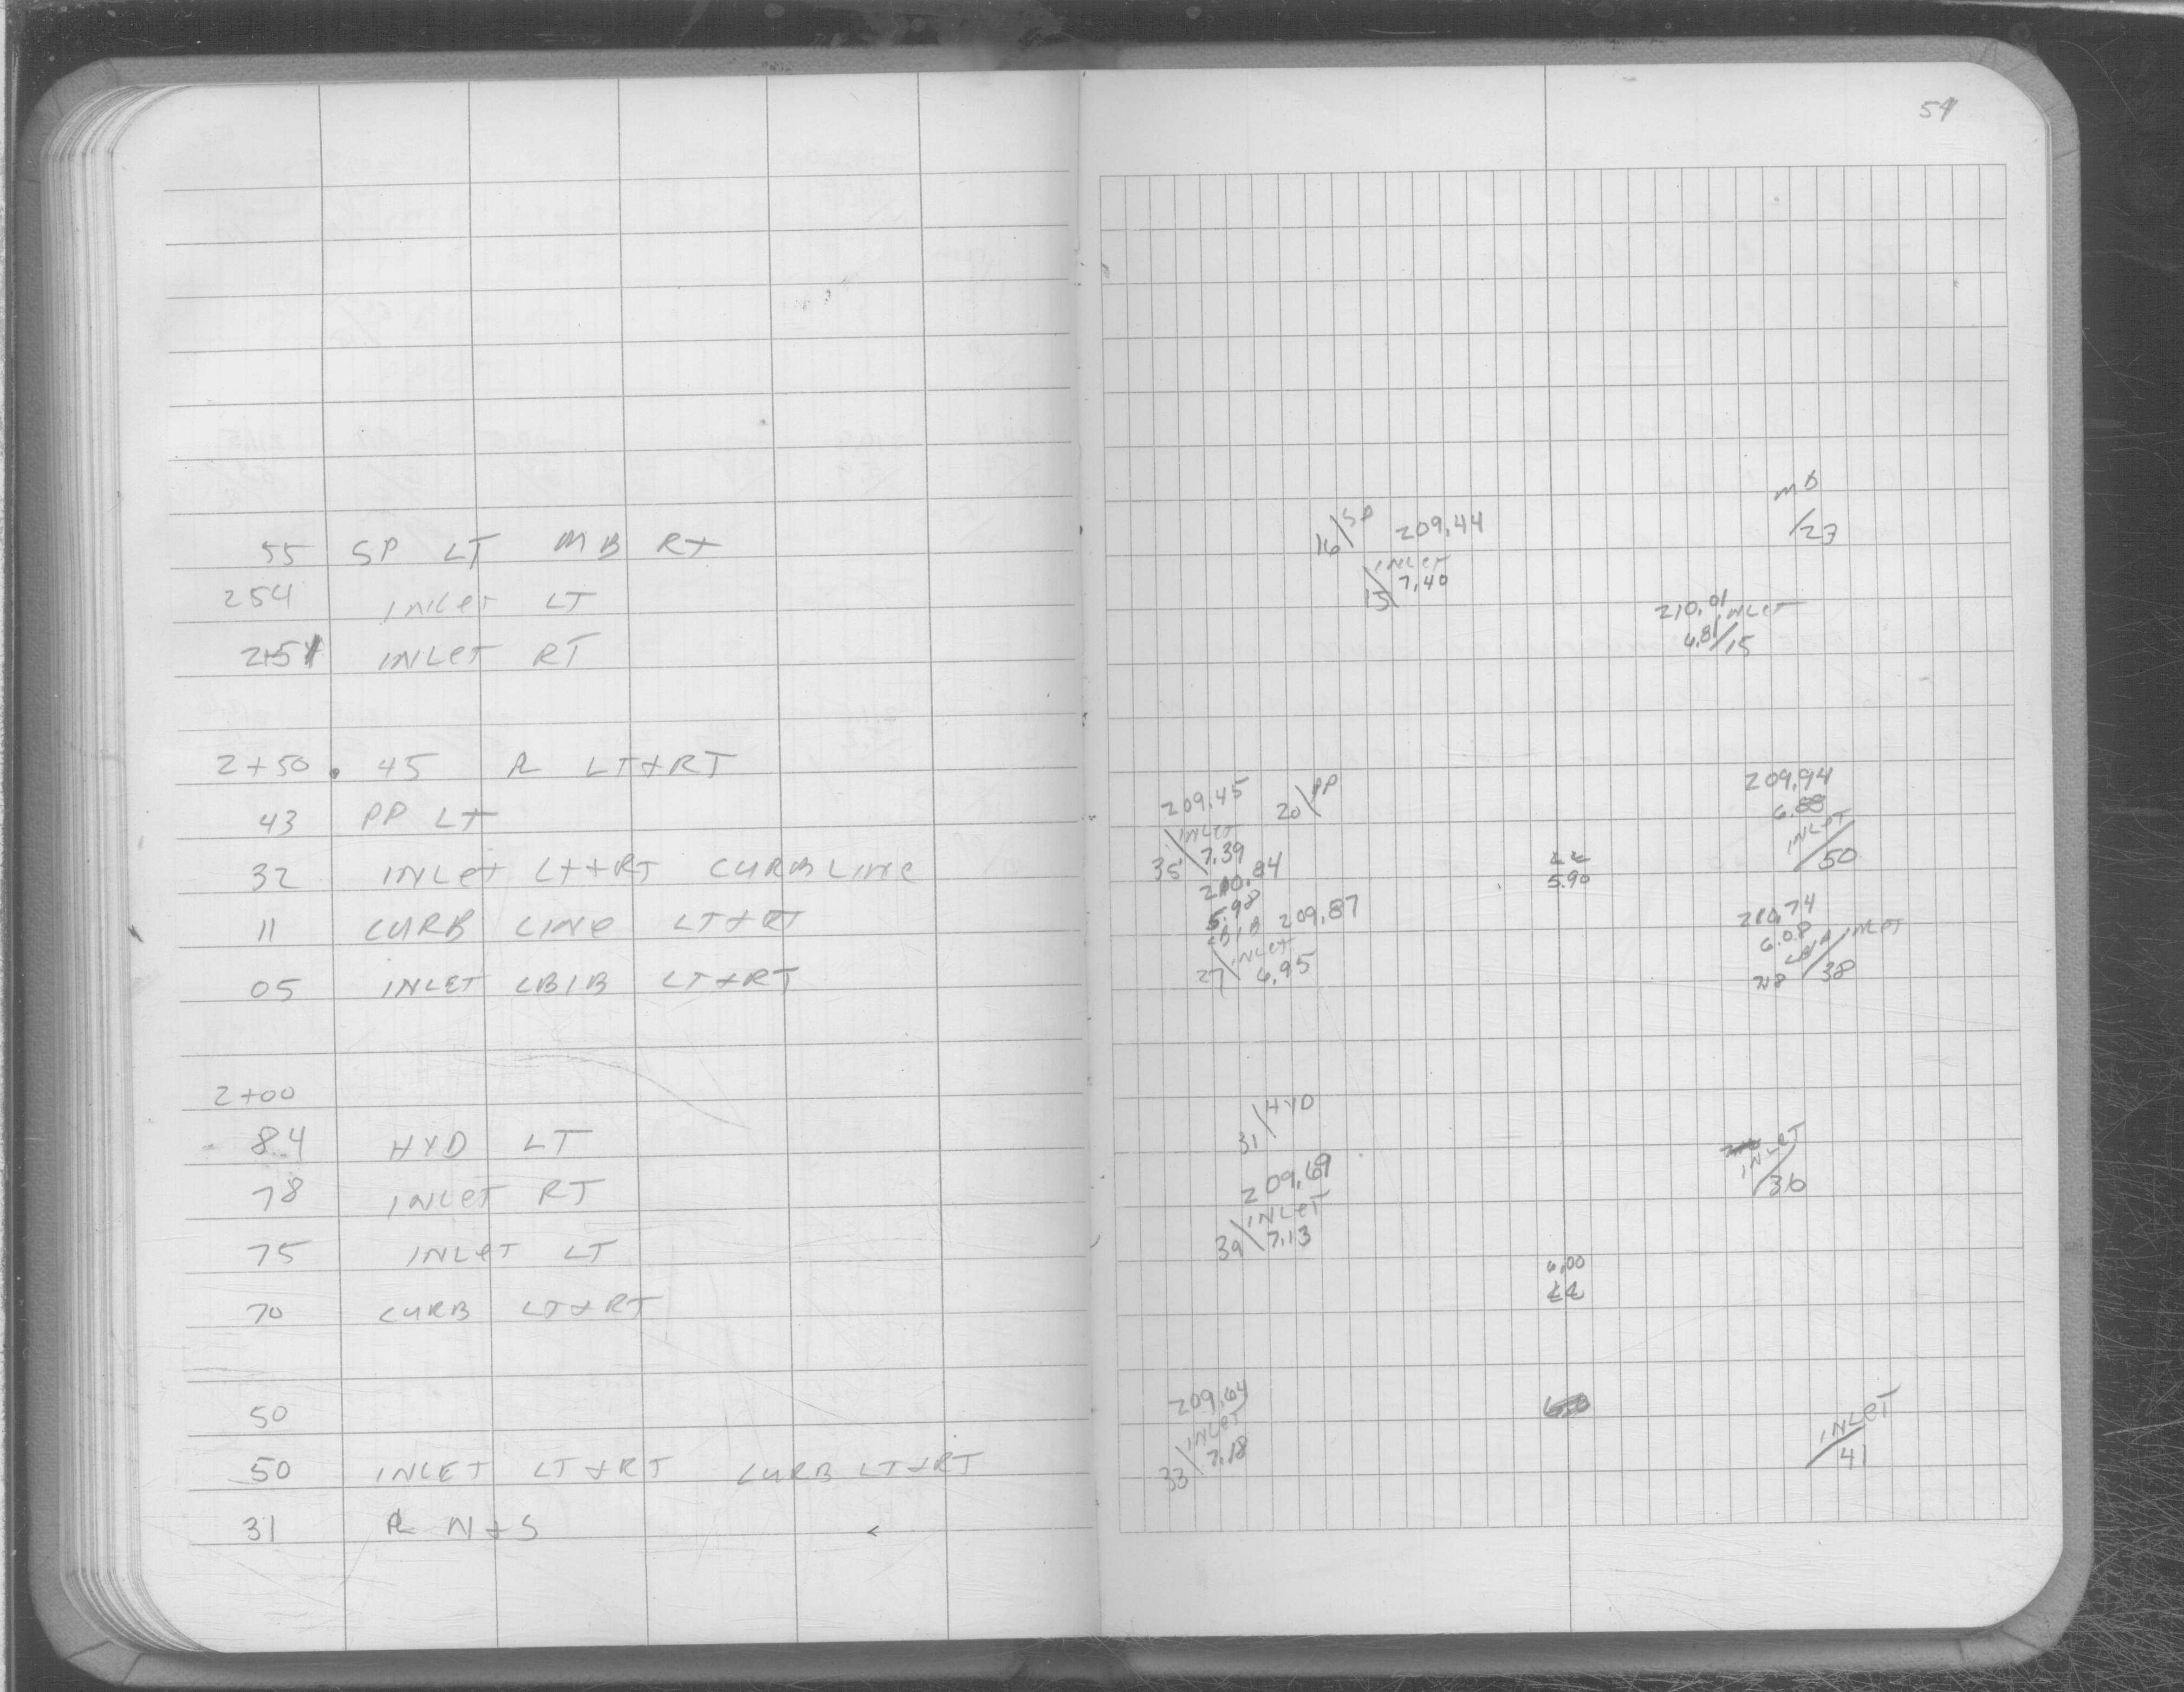 55 SP LT MB RT
254 INLET LT
2+51 INLET RT
2+50.45 PL LT+RT
43 PP LT
32 INLET LT+RT CURB LINE
11 CURB LINE LT+RT
05 INLET CB1B LT+RT
2+00
84 HYD LT
78 INLET RT
75 INLET LT
70 CURB LT+RT
50
50 INLET LT+RT CURB LT+RT
31 PL N+S
MB
16\SP 209.44
/23
INLET
15\7.40
210.01 INLET
6.81/15
209.45 20\PP
209.94
6.88
INLET
35\7.39
INLET
/50
210.84
5.98
5.90
CB1B 209.87
210.74
6.08
INLET
27\6.95
INLET
/38
31\HYD
INLET
/36
209.69
INLET
39\7.13
6.00
209.64
INLET
33\7.18
INLET
/41